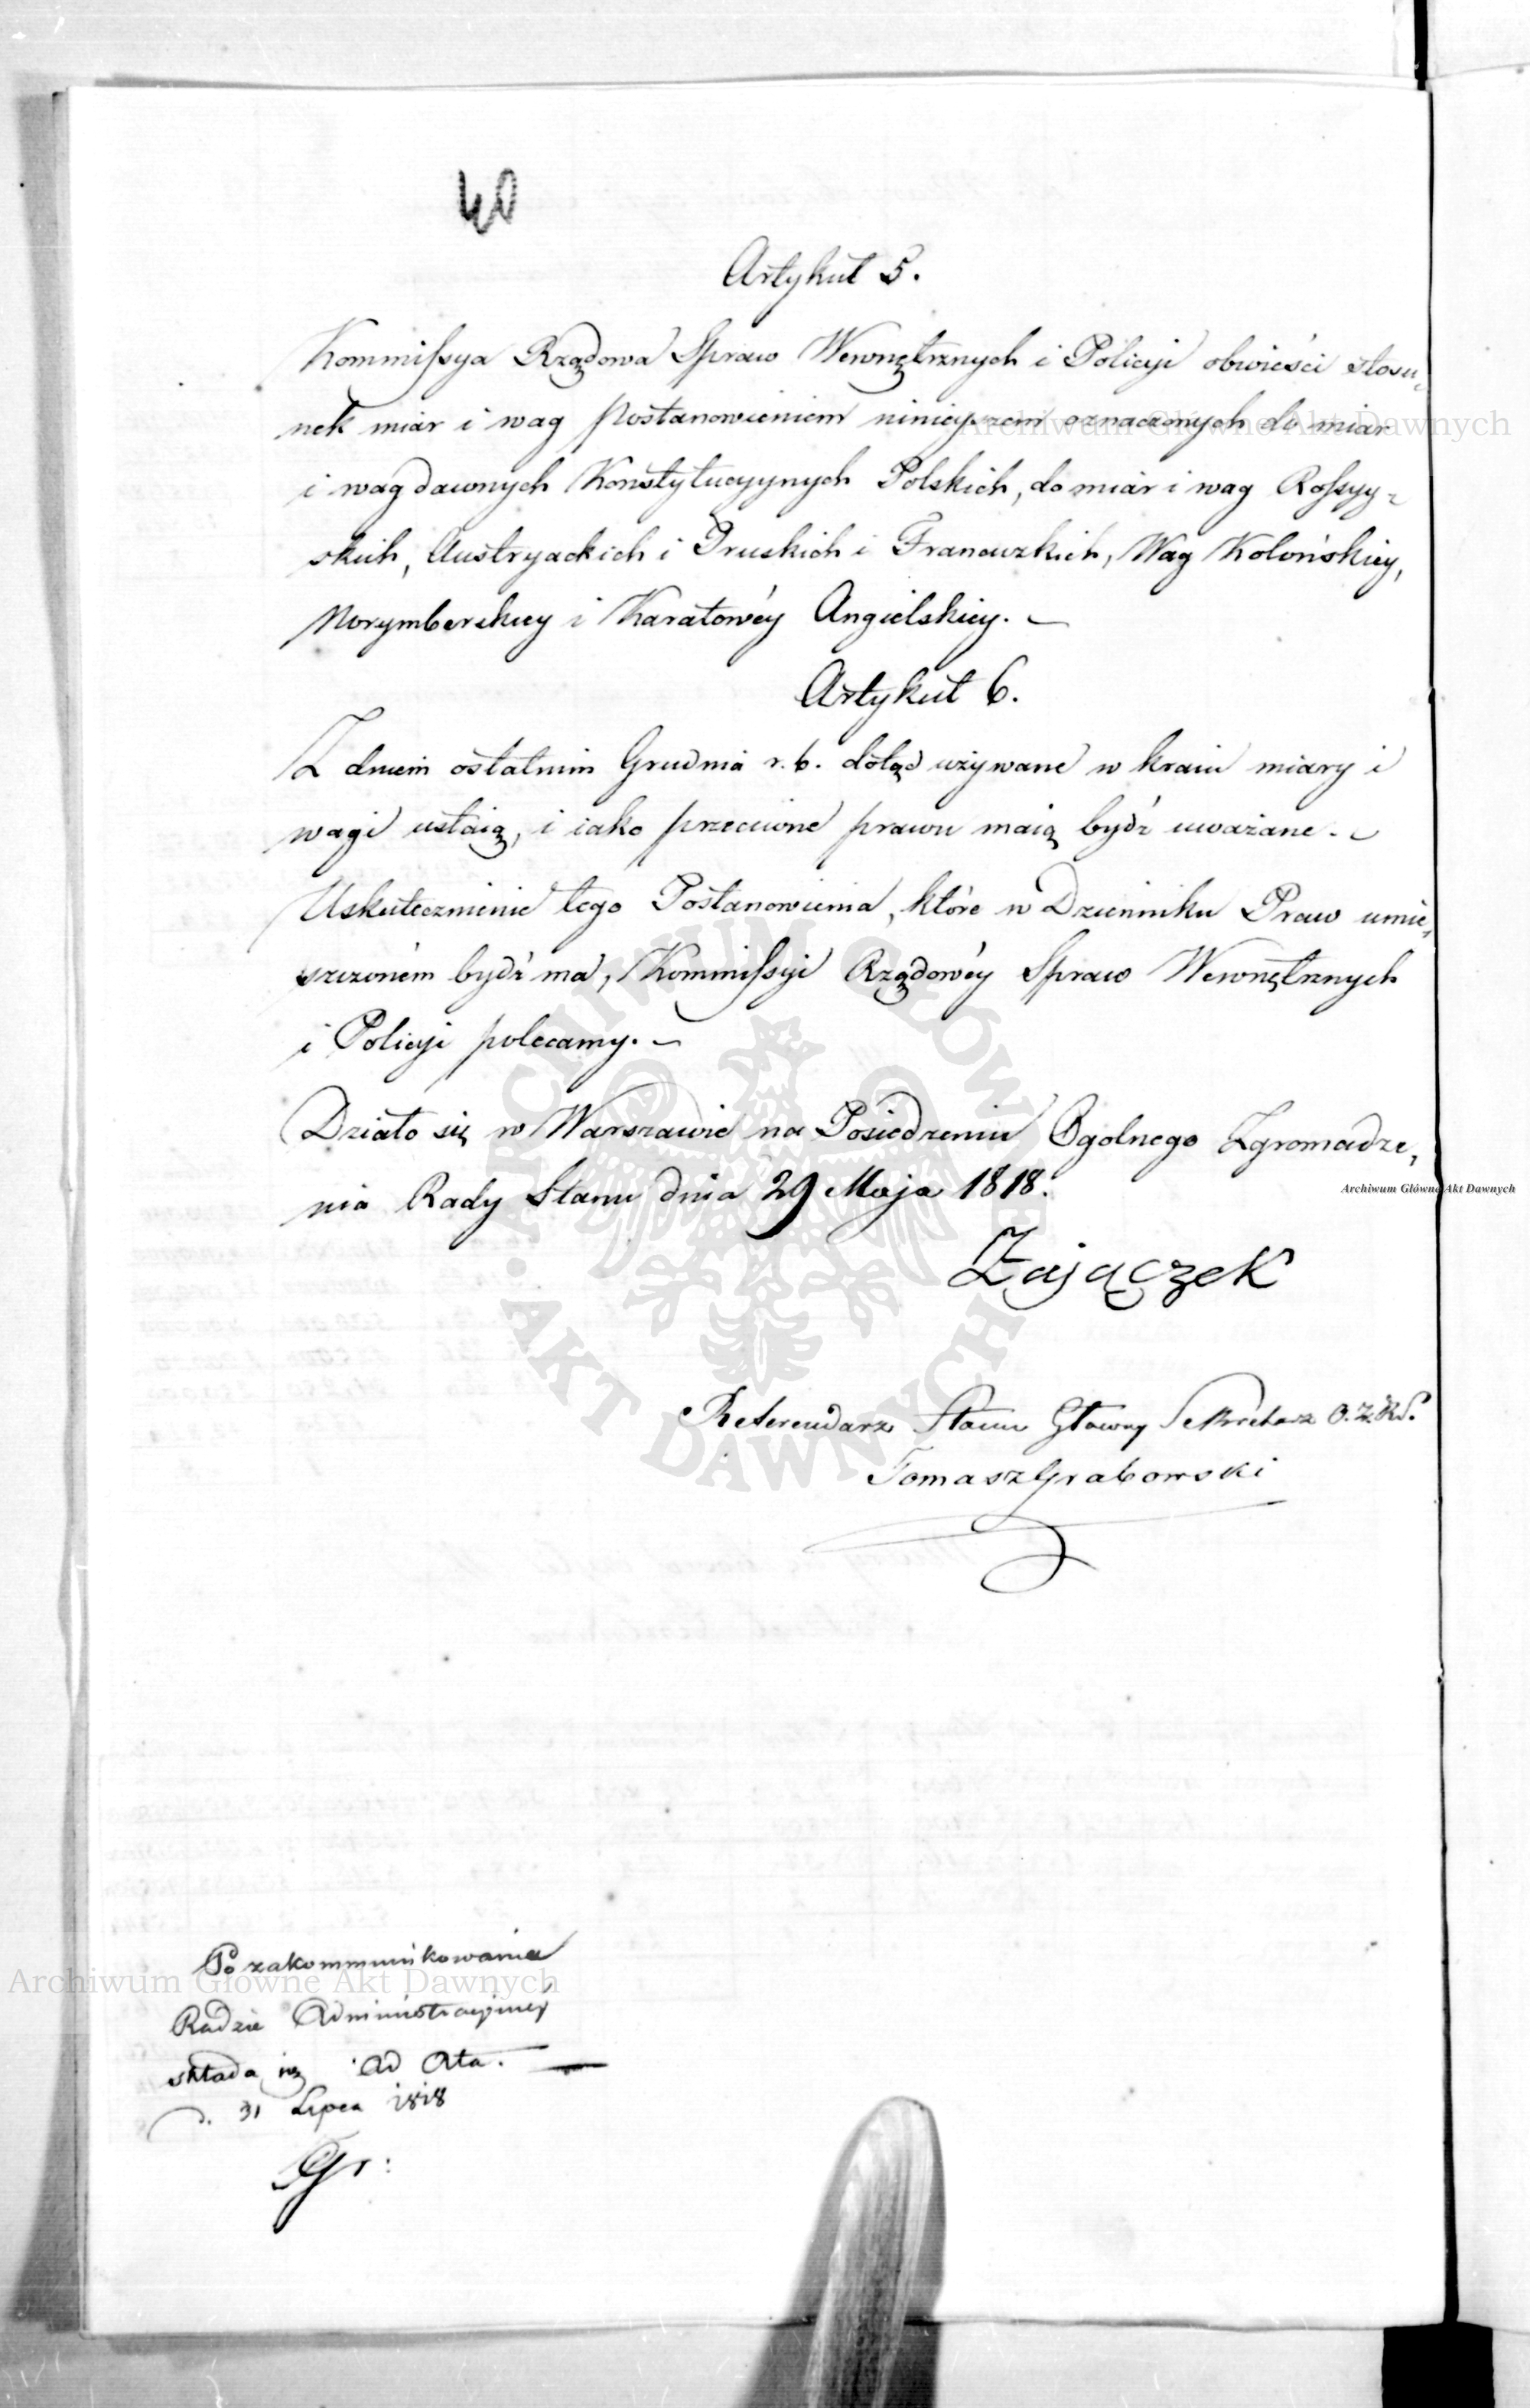 40
Artykuł 5.
Kommissya Rządowa Spraw Wewnętrznych i Policyi obwieści stosu-
nek miar i wag postanowieniem ninieyszem oznaczonych do miar
Archiwum Główne Akt Dawnych
i wag dawnych Konstytucyynych Polskich, do miar i wag Rossyy-
skich, Austryackich i Pruskich i Francuzkich, Wag Kolońskiey,
Norymberskiey i Karatowéy Angielskiey.
Artykuł 6.
Z dniem ostatnim Grudnia r. b. dotąd używane w kraiu miary i
wagi ustaią, i iako przeciwne prawu maią bydź uważane.
Uskutecznienie tego Postanowienia, które w Dzienniku Praw umie-
szczoném bydź ma, Kommissyi Rządowéy Spraw Wewnętrznych
i Policyi polecamy.
Działo się w Warszawie na Posiedzeniu Ogolnego Zgromadze-
nia Rady Stanu dnia 29 Maja 1818.
Archiwum Główne Akt Dawnych
Zajączek
ARCHIWUM GŁÓWNE AKT DAWNYCH
Referendarz Stanu Głowny Sekretarz O. Z. R. S.
Tomasz Grabowski
Po zakommunikowaniu
Archiwum Główne Akt Dawnych
Radzie Administracyjney
składa się Ad Acta.
d. 31 Lipca 1818
Gr: